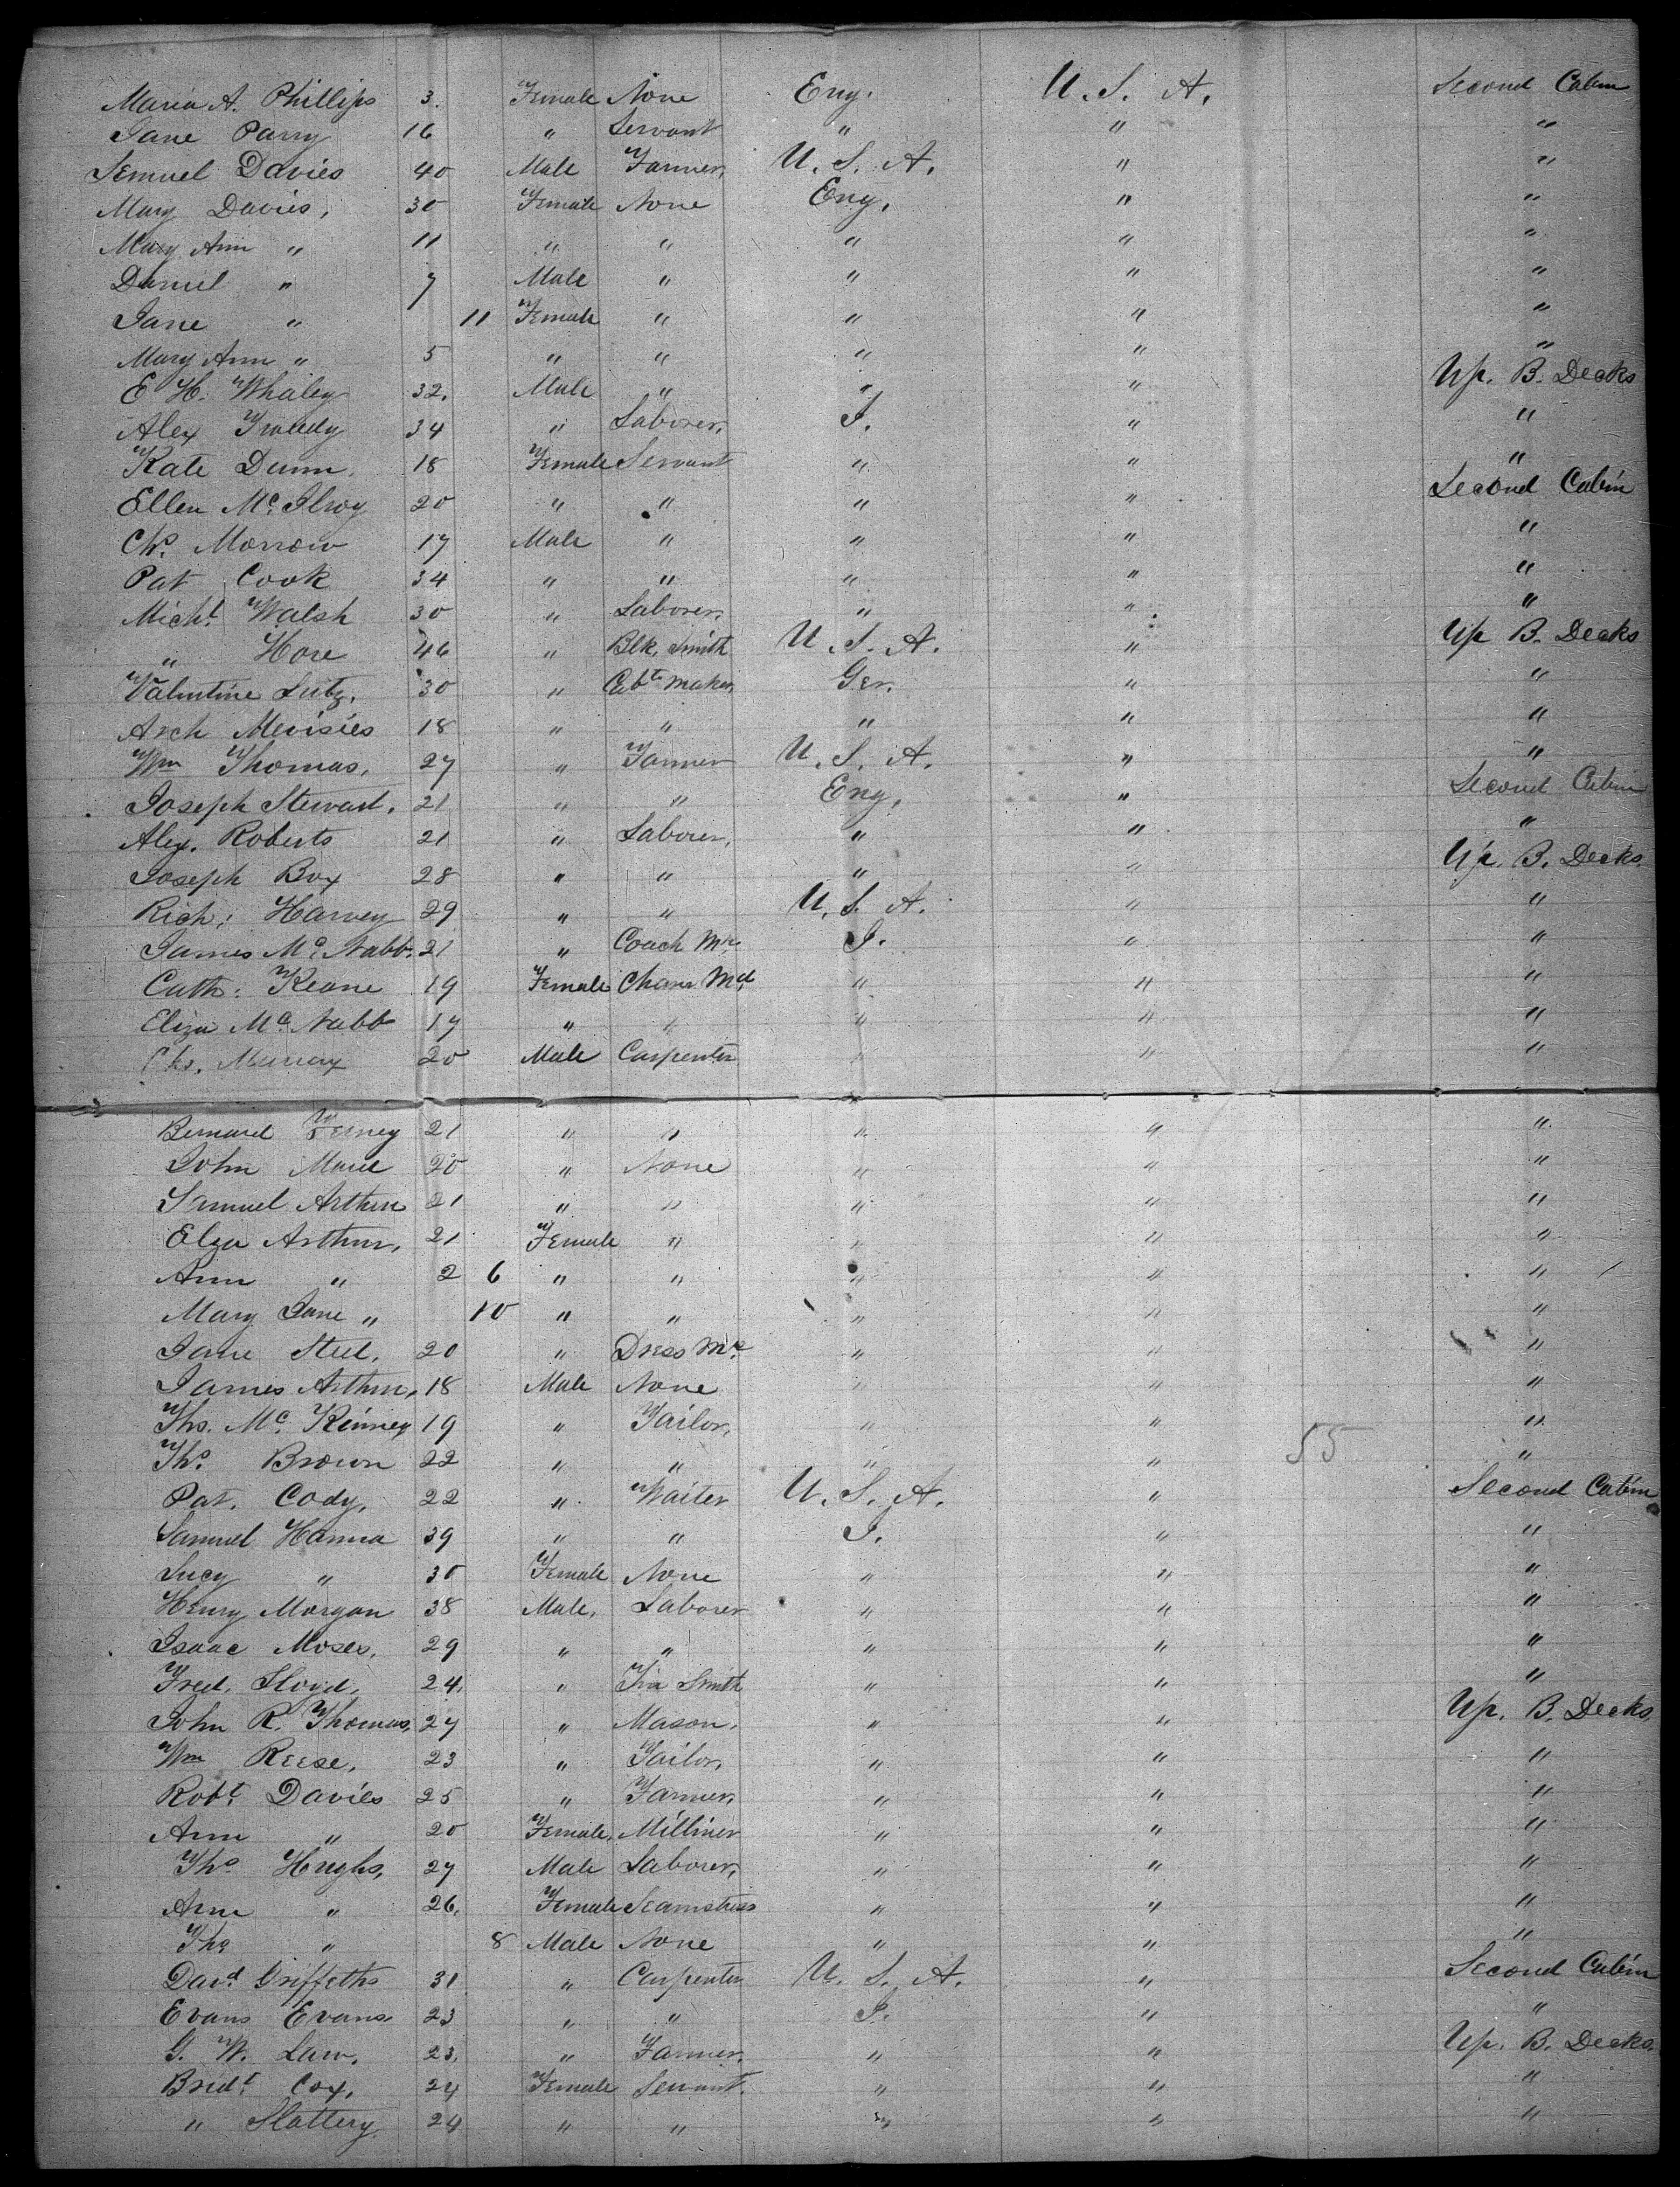 Maria A. Phillips 3. Female None Eng. U. S. A. Second Cabin
Jane Parry 16 " Servant " " "
Lemuel Davies 40 Male Farmer, U. S. A. " "
Mary Davies, 30 Female None Eng. " "
Mary Ann " 11 " " " " "
Daniel " 7 Male " " " "
Jane " 11 Female " " " "
Mary Ann " 5 " " " " "
E H. Whaley 32. Male " " " Up. B. Decks
Alex 34 " Laborer, I. " "
Kate Dunn. 18 Female Servant " " "
Ellen Mc.Ilroy 20 " " " " Second Cabin
Chs. Morrow 17 Male " " " "
Pat Cook 34 " " " " "
Michl. Walsh 30 " Laborer, " " "
" Hore 46 " Blk. Smith U. S. A. " Up B. Decks
Valentine Lutz. 30 " Cabt. Maker, Ger. " "
Arch 18 " " " " "
Wm Thomas, 27 " Farmer U. S. A. " "
Joseph Stewart. 21 " " Eng. " Second Cabin
Alex. Roberts 21 " Laborer, " " "
Joseph Box 28 " " " " Up. B. Decks.
Rich: Harvey 29 " " U. S. A. " "
James Mc.Nabb. 21 " Coach Mr. I. " "
Cath: Keane 19 Female Cham Md. " " "
Eliza Mc.Nabb 17 " " " " "
Chs. Murray 20 Male Carpenter " " "
Bernard 21 " " " " "
John 20 " None " " "
Samuel Arthur 21 " " " " "
Elza Arthur, 21 Female " " " "
Ann " 2 6 " " " " "
Mary Jane " 10 " " " " "
Jane Steel. 20 " Dress Mr. " " "
James Arthur, 18 Male None " " "
Ths. Mc. Kinney 19 " Tailor, " " "
55
Ths. Brown 22 " " " " "
Pat. Cody, 22 " Waiter U. S. A. " Second Cabin
Samuel Hanna 39 " " I. " "
Lucy " 30 Female None " " "
Henry Morgan 38 Male, Laborer " " "
Isaac Moses, 29 " " " " "
Fred. Lloyd, 24. " Tin Smith " " "
John R. Thomas, 27 " Mason. " " Up. B. Decks.
Wm Reese, 23 " Tailor, " " "
Robt. Davies 25 " Farmer, " " "
Ann " 20 Female, Milliner " " "
Ths. Hughs, 27 Male Laborer, " " "
Ann " 26. Female Seamstress " " "
Ths " 8 Male None " " "
Davd. Griffeths 31 " Carpenter U. S. A. " Second Cabin
Evans Evans 23 " " I. " "
G. W. Law, 23. " Farmer. " " Up. B. Decks.
Bridt. Cox, 24 Female Servant. " " "
" Slattery 24 " " " " "